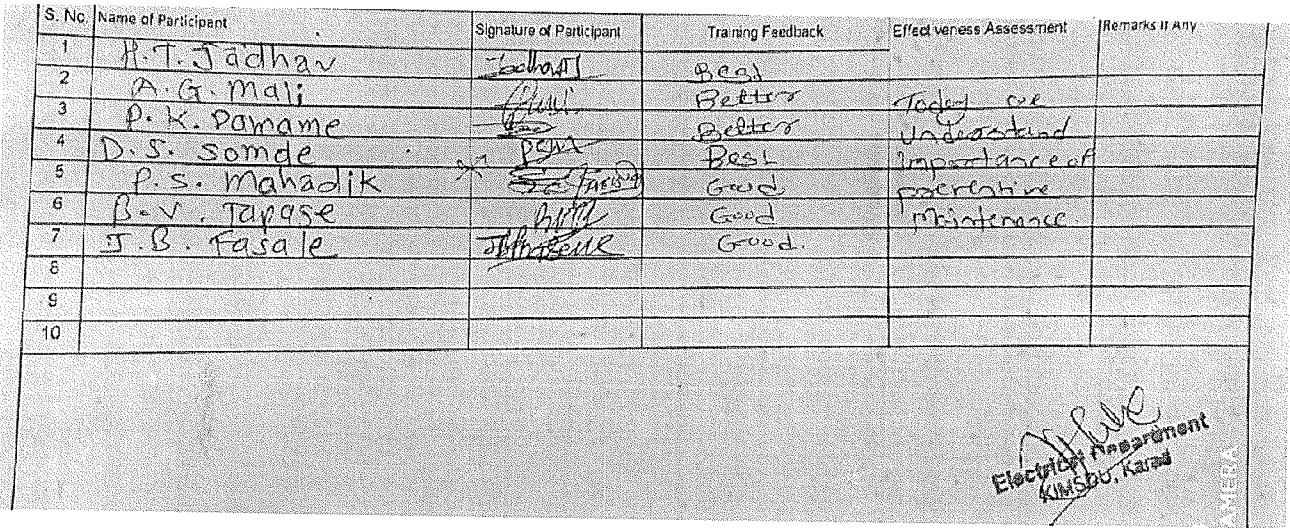 S. No. Name of Participant Signature of Participant Training Feedback Effectiveness Assessment Remarks If Any
1 H.T. Jadhav Best
2 A.G. Mali Better Today we
3 P.K. Damame Better Understand
4 D.S. Somde Best Importance of
5 P.S. Mahadik Good
6 B.V. Tapase Good Maintenance
7 J.B. Fasale Good
8
9
10
Electrical Department
KIMSDU, Karad
AMERA